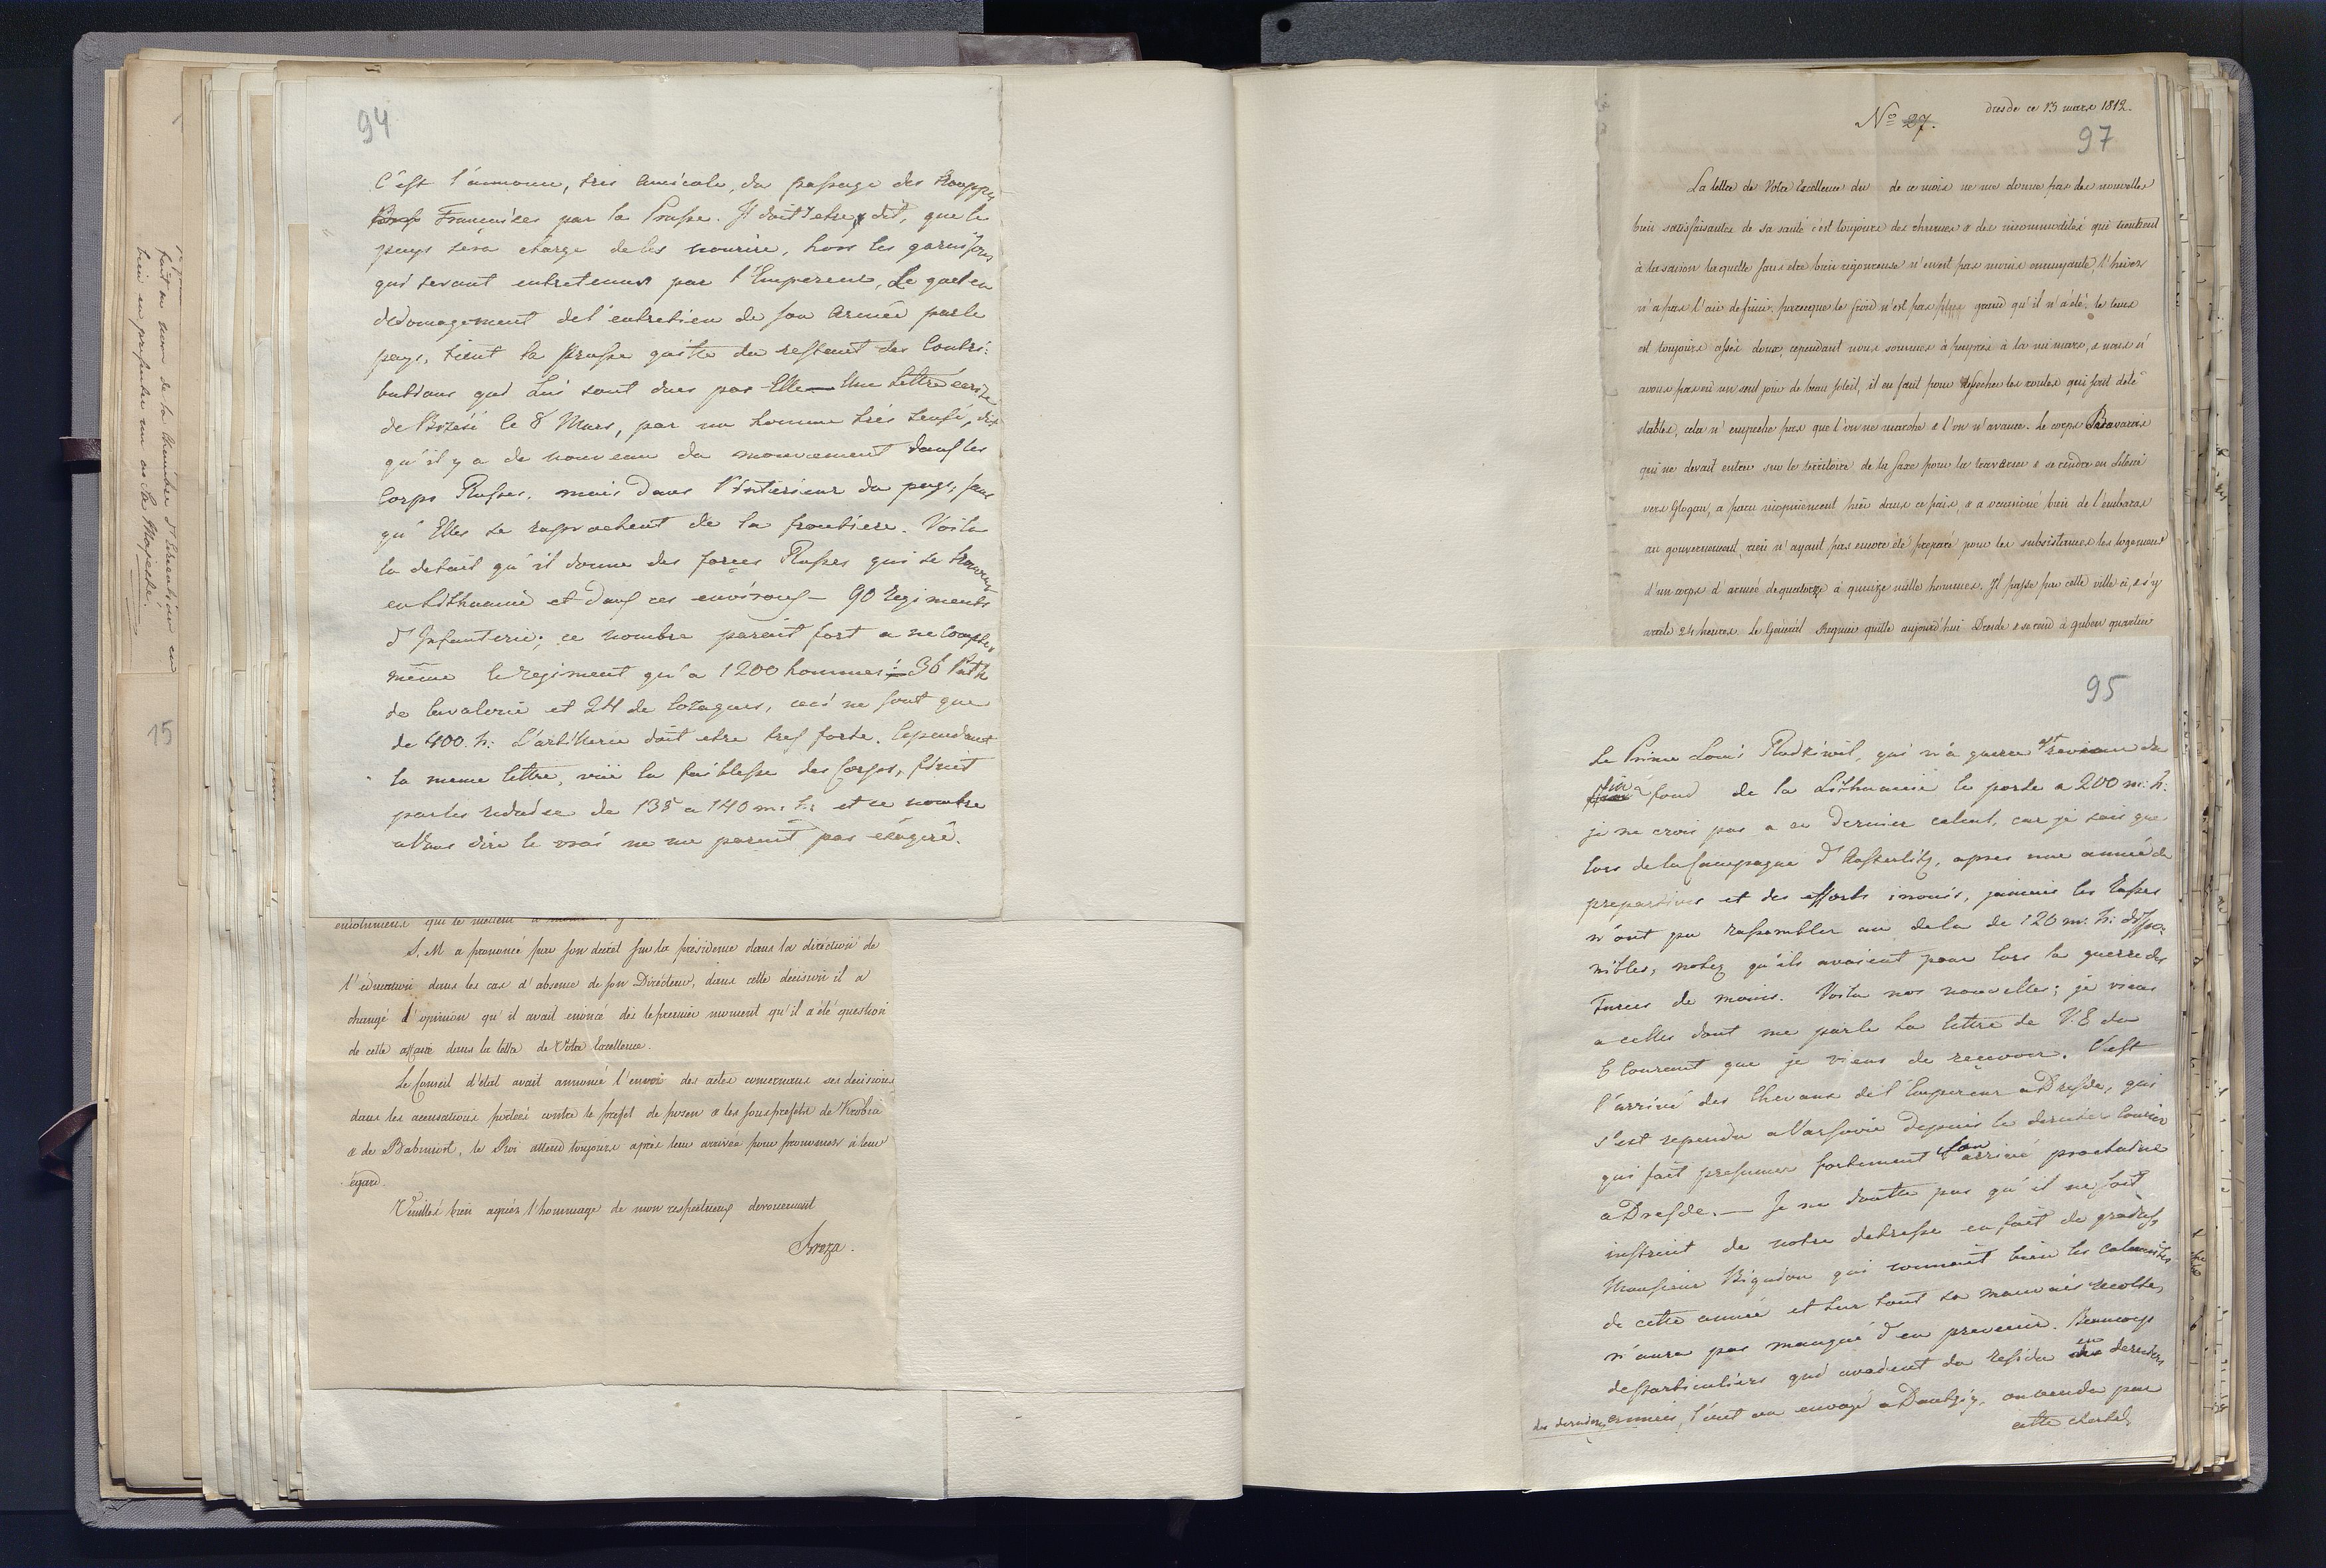 94
C'est l'annonce, tres amicale, du passage des trouppes
Françaises par la Prusse. Il doit y etre dit, que le
pays sera charge de les nourire, hors les garnisons
qui seront entretenus par l'Empereur, Le quel en
dedomagement de l'entretien de son Armée par le
pays, tient la Prusse quitte du restant des Contri:
butions qui Lui sont dues par Elle — Une Lettre ecrite
de Brzesć le 8 Mars, par un homme très sensé, dit
qu'il y a de nouveau du mouvement dans les
Corps Russes, mais dans l'interieur du pays, sans
qu'Elles se raprochent de la frontiere. Voila
le detail qu'il donne des forces Russes qui se trouvent
en Lithuanie et dans ces environs — 90 Regiments
d'Infanterie; ce nombre parait fort a ne compter
même le regiment qu'a 1200 hommes
de Cavalerie et 24 de Cozaques, ceci ne sont que
de 400. h: L'artillerie doit etre tres forte. Cependant
la meme lettre, vüe la faiblesse des Corps, finit
par les reduire de 135 a 140 m: h: et ce nombre
a Vous dire le vrai ne me parait pas exageré.
S. M a prononcé par son decret sur la présidence dans la direction de
l'éducation dans les cas d'absence de son Directeur, dans cette decision il a
changé d'opinion qu'il avait enoncé dès le premier moment qu'il a été question
de cette affaire dans la lettre de Votre Excellence.
Le Conseil d'état avait annoncé l'envoi des actes concernans ses decisions
dans les accusations portées contre le prefet de posen & les sousprefets de Krobia
& de Babimost, le Roi attend toujours après leur arrivée pour prononcer à leur
égard.
Veuillés bien agréer l'hommage de mon respectueux devouement
Breza.
fait au nom de la Chambre d'Education en
bien en presenter un au Sa Majesté.
15
No 27.
dresde ce 13 mars 1812.
97
La lettre de Votre Excellence du de ce mois ne me donne pas des nouvelles
bien satisfaisantes de sa santé c'est toujours des rhumes & des incommodités qui tiennent
à la saison laquelle sans etre bien rigoureuse n'en est pas moins ennuyante, l'hiver
n'a pas l'air de finir, parceque le froid n'est pas plus grand qu'il n'a été. le tems
est toujours assés doux, cependant nous sommes à peuprès à la mi mars, & nous n'
avons pas eu un seul jour de beau soleil, il en faut pour dessecher les routes, qui sont déte-
stables, cela n'empeche pas que l'on ne marche & l'on n'avance. Le corps Bavarois
qui ne devait entrer sur le territoire de la Saxe pour la traverser & se rendre en Silesie
vers Glogau, a paru inopinement hier dans ce païs, & a occasioné bien de l'embaras
au gouvernement, rien n'ayant pas encore été preparé pour les subsistances les logement
d'un corps d'armée de quatorze à quinze mille hommes. Il passe par cette ville ci, & s'y
arrete 24 heures. Le Général Regnier quitte aujourd'hui Dresde & se rend à guben quartier
95
Le Prince Louis Radziwil, qui n'a guerre est revienu du
fin fond de la Lithuanie le porte a 200 m: h:
je ne crois pas a ce dernier calcul, car je sais que
lors de la Campagne d'Austerlitz, apres une année de
preparatives et des efforts inouis, jamais les Russes
n'ont pu rassembler au dela de 120 m: h: dispo:
nibles, notez qu'ils avaient pour lors la guerre des
Turcs de moins. Voila nos nouvelles; je viens
a celles dont me parle La lettre de V. E du
6 Courant que je viens de recevoir. C'est
l'arrivé des Chevaux de l'Empereur a Dresde, qui
s'est rependu a Varsovie depuis le dernier Courier
qui fait presumer fortement son arrivé prochaine
a Dresde. — Je ne doutte pas qu'il ne soit
instruit de notre detresse en fait de grains,
Monsieur Bignon qui connait bien les calamités
de cette année et sur tout sa mauvaise recolte,
n'aura pas manqué d'en prevenir. Beaucoup
des particuliers qui avaient du residu en
des dernieres années, l'ont ou envoyé a Dantzig, ou vendu par
cette cherté